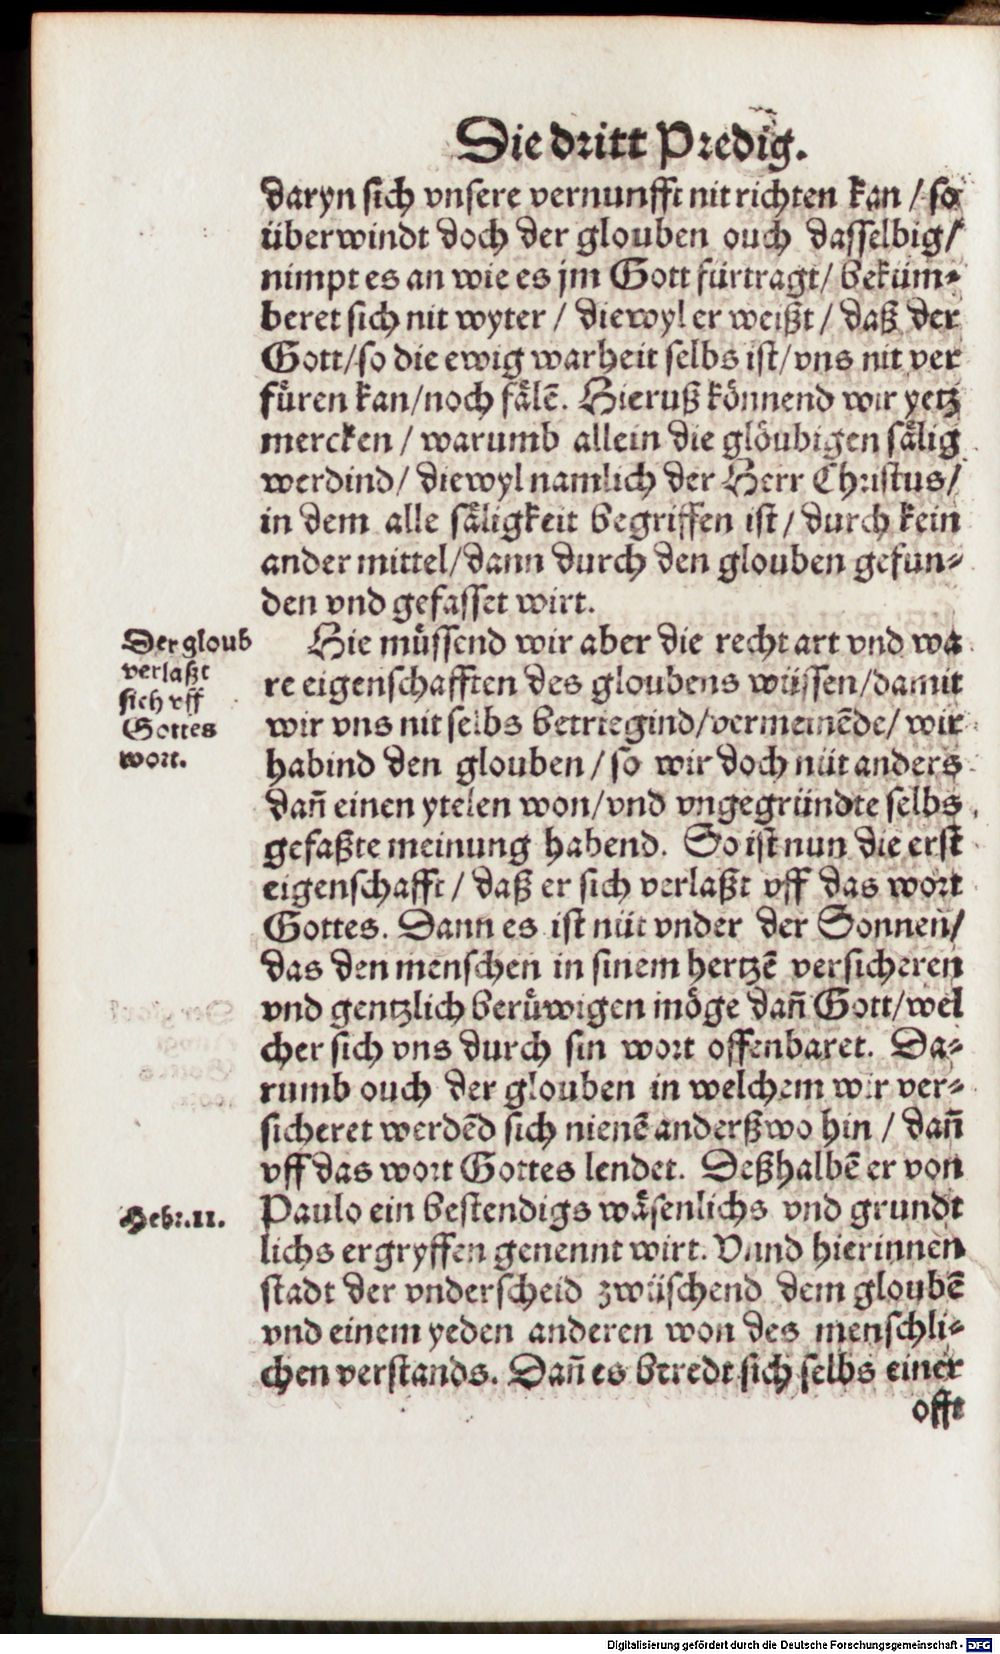 Die dritt Predig.
daryn sich vnsere vernunfft nit richten kan / so
überwindt doch der glouben ouch dasselbig/
nimpt es an wie es jm Gott fürtragt/ beküm-
beret sich nit wyter / diewyl er weißt / daß der
Gott/so die ewig warheit selbs ist/vns nit ver
fuͤren kan/noch faͤlē. Hieruß koͤnnend wir yetz
mercken / warumb allein die gloͤubigen saͤlig
werdind/ diewyl namlich der Herr Christus/
in dem alle saͤligkeit begriffen ist / durch kein
ander mittel/dann durch den glouben gefun-
den vnd gefasset wirt.
Der gloub
verlaßt
sich vff
Gottes
wort.
Hie muͤssend wir aber die recht art vnd wa
re eigenschafften des gloubens wüssen/damit
wir vns nit selbs betriegind/vermeinēde/ wir
habind den glouben / so wir doch nüt anders
dañ einen ytelen won/vnd vngegründte selbs
gefaßte meinung habend. So ist nun die erst
eigenschafft / daß er sich verlaßt vff das wort
Gottes. Dann es ist nüt vnder der Sonnen/
das den menschen in sinem hertzē versicheren
vnd gentzlich beruͤwigen moͤge dañ Gott/wel
cher sich vns durch sin wort offenbaret. Da-
rumb ouch der glouben in welchem wir ver-
sicheret werdēd sich nienē anderßwo hin / dañ
vff das wort Gottes lendet. Deßhalbē er von
Hebr.11.
Paulo ein bestendigs waͤsenlichs vnd grundt
lichs ergryffen genennt wirt. Vnnd hierinnen
stadt der vnderscheid zwüschend dem gloubē
vnd einem yeden anderen won des menschli-
chen verstands. Dañ es beredt sich selbs einer
offt
Digitalisierung gefördert durch die Deutsche Forschungsgemeinschaft - DFG